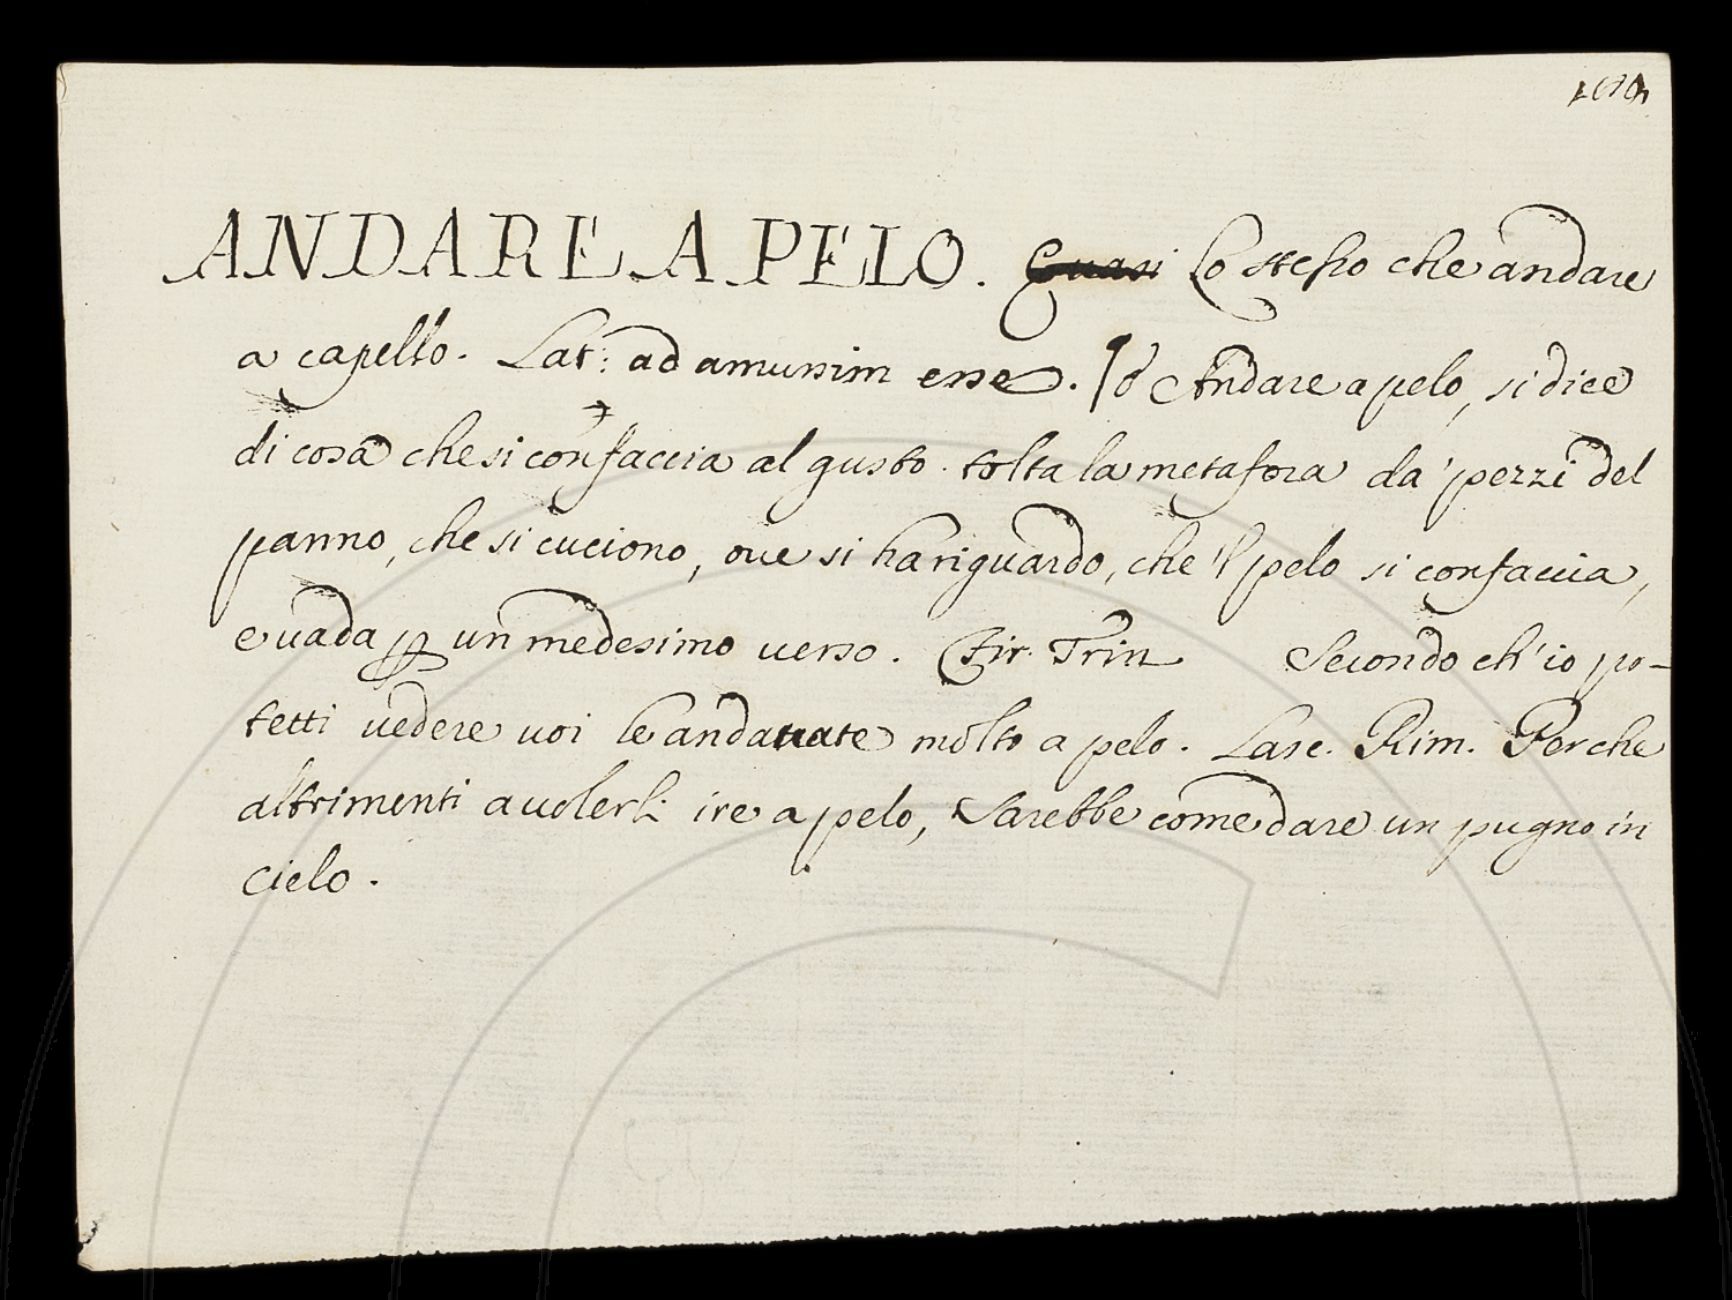 ANDARE A PELO. Quasi Lo stesso che andare
a capello. Lat: ad amussim esse. Andare a pelo, si dice
di cosa che si confaccia al gusto. tolta la metafora da' pezzi del
panno, che si cuciono, ove si ha riguardo, che 'l pelo si confaccia,
e vada p un medesimo verso. Fir. Trin Secondo ch' io po-
tetti vedere voi le andavate molto a pelo. Lasc. Rim. Perche
altrimenti a volerli ire a pelo, Sarebbe come dare un pugno in
cielo.